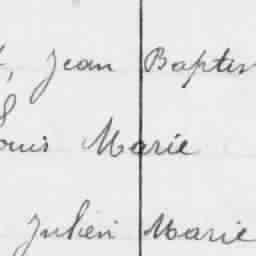 , Jean Baptis
Louis Marie
Julien Marie